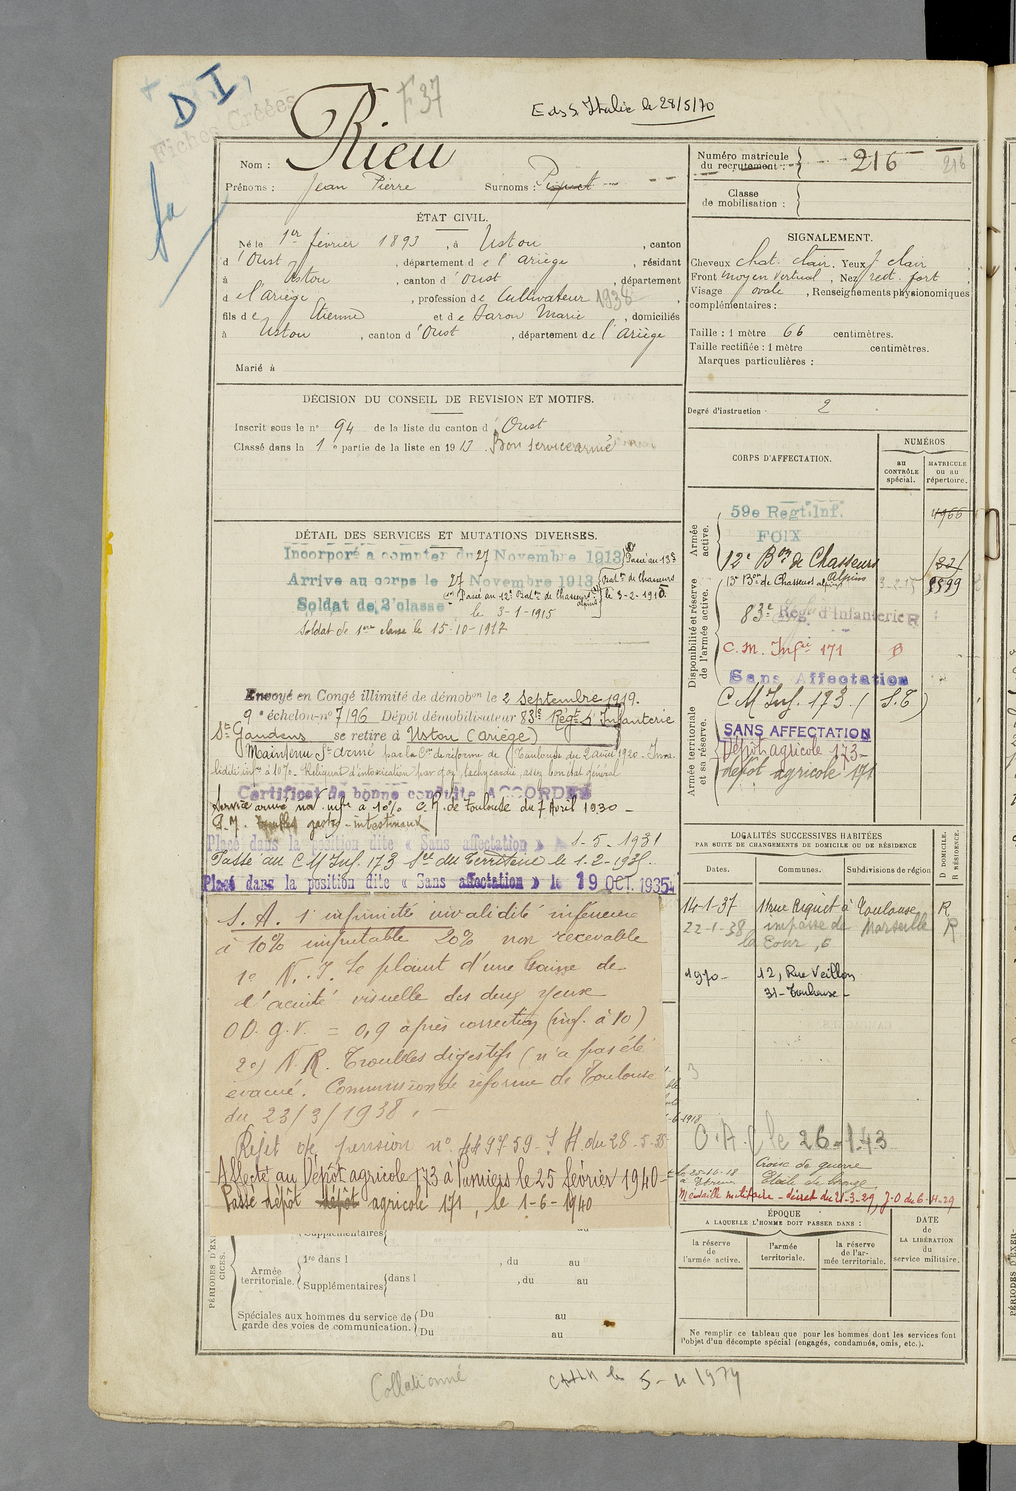 D I
Fiches Créées
fa
F37
E ds S. Italie le 28/5/70
Nom : Rieu
Prénoms : Jean Pierre Surnoms : Piquet
ÉTAT CIVIL.
Né le 1er février 1893, à Ustou, canton
d'Oust, département de l'Ariège, résidant
à Ustou, canton d'Oust, département
de l'ariège, profession de Cultivateur 1938,
fils de Etienne et de Saron Marie, domiciliés
à Ustou, canton d'Oust, département de l'Ariège
Marié à
DÉCISION DU CONSEIL DE REVISION ET MOTIFS.
Inscrit sous le n° 94 de la liste du canton d'Oust
Classé dans la 1e partie de la liste en 1913. Bon service armé
DÉTAIL DES SERVICES ET MUTATIONS DIVERSES.
Incorporé a compter du 27 Novembre 1913
Arrive au corps le 27 Novembre 1913
Soldat de 2'classe
Passé au 12e Batn de Chasseurs alpins
le 3-1-1915
Passé au 13e
Batn de Chasseurs
le 3-2-1915
Soldat de 1ere classe le 15-10-1917
Envoyé en Congé illimité de démobon le 2 Septembre 1919.
9e échelon-n° 7196 Dépôt démobilisateur 83e Régt d'Infanterie
St Gaudens se retire à Ustou (Ariège)
Maintenu St armé par la Con de réforme de Toulouse du 2 avril 1920. Inva-
lidité infre à 10%. Reliquat d'intoxication par gaz, tachycardie, assez bon état général
Certificat de bonne conduite ACCORDÉ
Service armé inv. infre à 10% C.R. de Toulouse du 7 Avril 1930 -
P.M. Troubles gastro-intestinaux
Placé dans la position dite « Sans affectation » 1-5-1931
Passé au C M Inf. 173 Son du Territoire le 1-2-193
Placé dans la position dite « Sans affectation » le 19 OCT. 1935
S. A. 1 infirmité invalidité inférieure
à 10% imputable 20% non recevable
1° N. I. Se plaint d'une baisse de
d'acuité visuelle des deux yeux
O D. g. V. = 0,9 après correction (inf. à 10)
2°) N. R. Troubles digestifs (n'a pas été
évacué. Commission de réforme de Toulouse
du 23/3/1938. -
Rejet de pension n° 449759-J H. du 28-5-38
Affecté au Dépôt agricole 173 à Pamiers le 25 février 1940
Passé dépôt dépôt agricole 171, le 1-6-1940
PÉRIODES D'EXERCICES.
Supplémentaires
Armée territoriale.
1re dans l , du au
Supplémentaires dans l , du au
Spéciales aux hommes du service de garde des voies de communication.
Du au
Du au
Collationné
Numéro matricule du recrutement : 216 216
Classe de mobilisation :
SIGNALEMENT.
Cheveux chat. clair. Yeux j clair,
Front moyen vertical, Nez rect. fort,
Visage ovale, Renseignements physionomiques
complémentaires :
Taille : 1 mètre 66 centimètres.
Taille rectifiée : 1 mètre centimètres.
Marques particulières :
Degré d'instruction 2
CORPS D'AFFECTATION.
NUMÉROS
au CONTRÔLE spécial.
MATRICULE ou au répertoire.
Armée active.
59e Regt.Inf. 4966
FOIX
12e Bon de Chasseurs
13e Bon de Chasseurs alpins 3-2-15 8599
Disponibilité et réserve de l'armée active.
83e Rég d'Infanterie R
C. M. Infie 171 B
Sans Affectation
C M Inf. 173 (S.T)
Armée territoriale et sa réserve.
SANS AFFECTATION
Dépôt agricole 173-
dépôt agricole 171
LOCALITÉS SUCCESSIVES HABITÉES
PAR SUITE DE CHANGEMENTS DE DOMICILE OU DE RÉSIDENCE
Dates. Communes. Subdivisions de région
D DOMICILE. R RÉSIDENCE.
14-1-37 11 rue Riquet à Toulouse R
22-1-38 impasse de Marseille R
la Tour, 6
1970- 12, Rue Veillon
31-Toulouse-
3
-6-1918
26-1-43
25-10-18
Croix de guerre
Etoile de bronze
Médaille militaire - décret du 21-3-29, J.O du 6-4-29
ÉPOQUE
A LAQUELLE L'HOMME DOIT PASSER DANS :
la réserve de l'armée active.
l'armée territoriale.
la réserve de l'armée territoriale.
DATE de LA LIBÉRATION du service militaire.
Ne remplir ce tableau que pour les hommes dont les services font
l'objet d'un décompte spécial (engagés, condamnés, omis, etc.).
le 5-11 1974